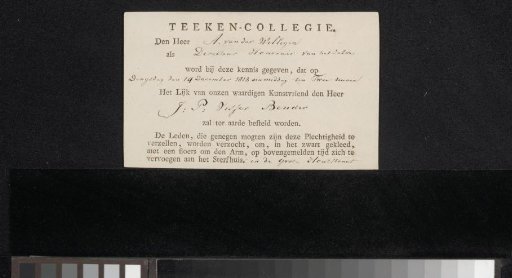 TEEKEN-COLLEGIE.
Den Heer A. van der Willigen
als Directeur Honorair van het
word bij deze kennis gegeven, dat op
Dingsdag den 19 December 1813
Het Lijk van onzen waardigen Kunstvriend den Heer
J: P: Visser Bender
zal ter aarde besteld worden.
De Leden, die genegen mogten zijn deze Plechtigheid te
verzellen, worden verzocht, om, in het zwart gekleed,
met een floers om den Arm, op bovengemelden tijd zich te
vervoegen aan het Sterfhuis. in de Groote Houtstraat